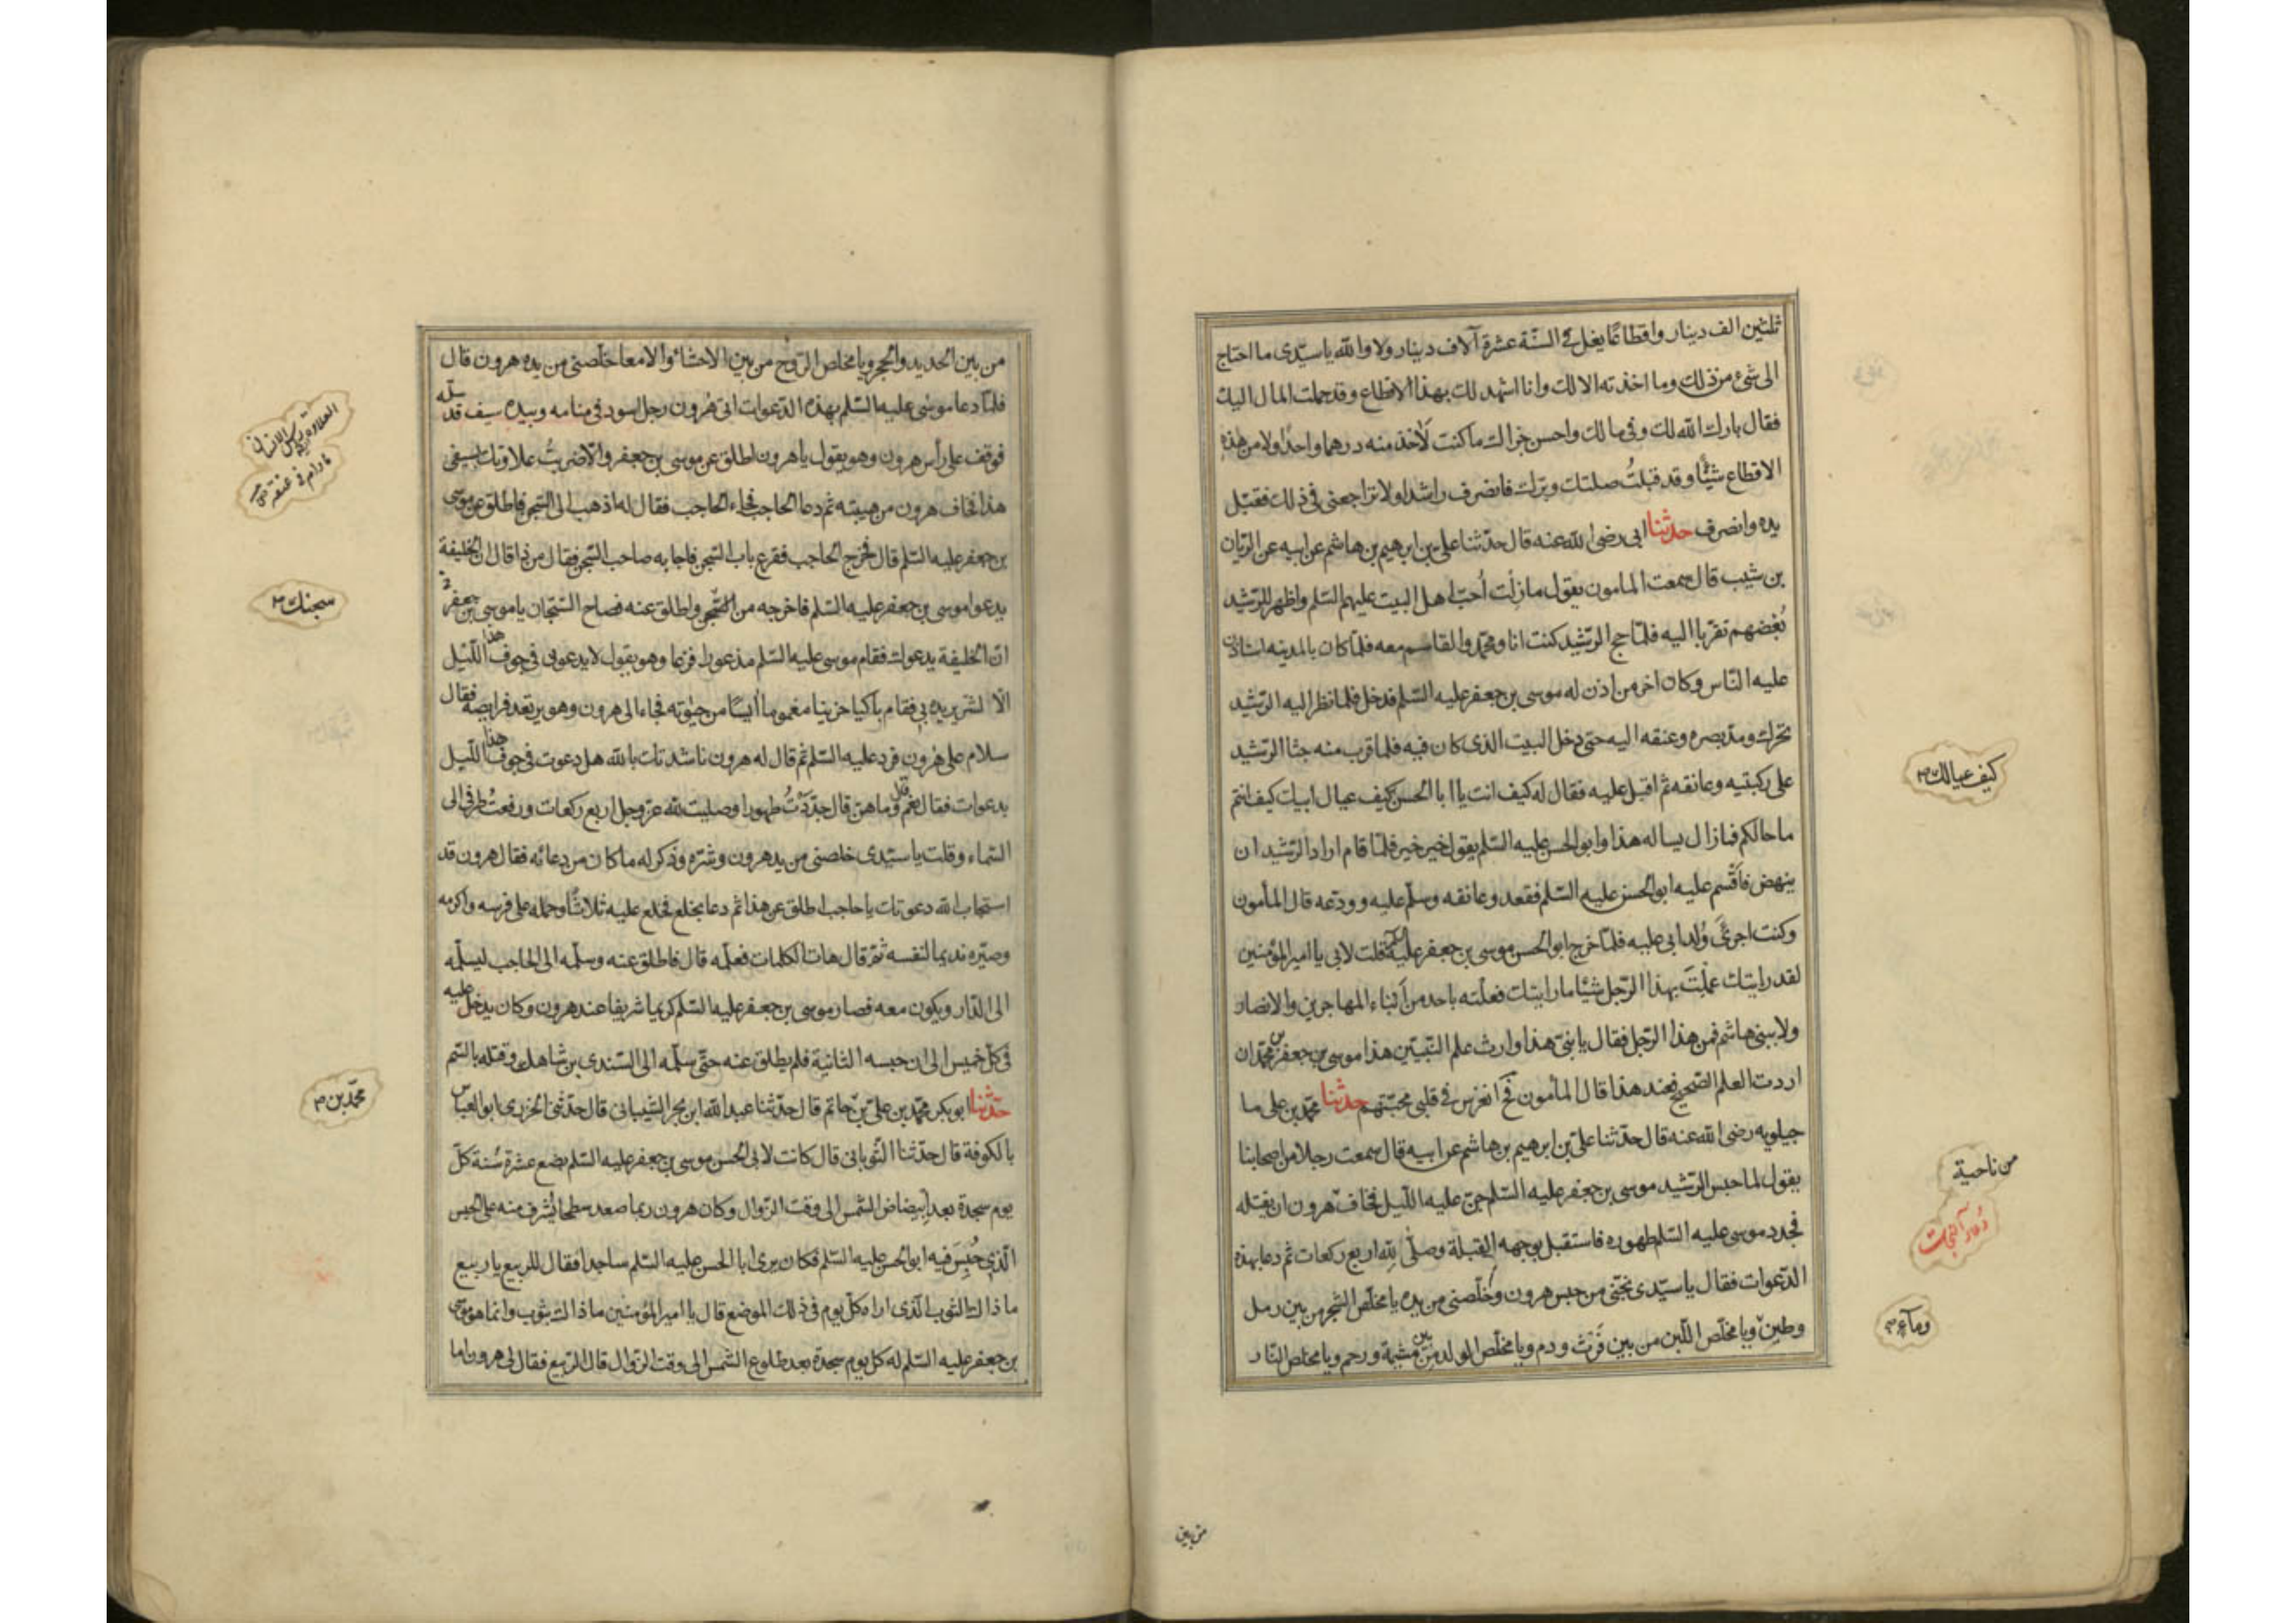 ثلثين الف دينار واقطاعًا يغل في السّنة عشرة آلاف دينار ولا والله يا سيّدى ما احتاج
الى شئ من ذلك وما اخذته الا لك وانا اشهد لك بهذا الاقطاع وقد حملت المال اليك
فقال بارك الله لك وفى مالك واحسن جزاك ما كنت لآخذ منه درهما واحدًا ولا من هذه
الاقطاع شيئًا وقد قبلتُ صلتك وبرّك فانصرف راشدا ولا تراجعنى فى ذلك فقبّل
يده وانصرف حدثنا ابى رضى الله عنه قال حدّثنا علىّ بن ابرهيم بن هاشم عن ابيه عن الريّان
بن شبيب قال سمعت المامون يقول ما زلت أحبّ اهل البيت عليهم السّلم واظهر للرّشيد
بُغضهم تقرّبا اليه فلمّا حج الرّشيد كنت انا ومحمّد والقاسم معه فلمّا كان بالمدينه استاذن
عليه النّاس وكان اخر من اذن له موسى بن جعفر عليه السّلم فدخل فلما نظر اليه الرّشيد
تحرك ومدّ بصره وعنقه اليه حتى دخل البيت الذى كان فيه فلما قرب منه جثا الرّشيد
على ركبتيه وعانقه ثم اقبل عليه فقال له كيف انت يا ابا الحسن كيف عيال ابيك كيف انتم
كيف عيالك
ما حالكم فما زال يساله هذا وابو الحسن عليه السّلم يقول خير خير فلمّا قام اراد الرّشيد ان
ينهض فاقسم عليه ابو الحسن عليه السّلم فقعد وعانقه وسلّم عليه وودّعه قال المأمون
وكنت اجرئ وُلد ابى عليه فلمّا خرج ابو الحسن موسى بن جعفر عليه السلم قلت لابى يا امير المؤمنين
لقد رايتك عملتَ بهذا الرّجل شيئا ما رايتك فعلته باحد من ابناء المهاجرين والانصار
ولا ببنى هاشم فمن هذا الرّجل فقال يا بنىّ هذا وارث علم النّبيّين هذا موسى بن جعفر بن محمّد ان
اردت العلم الصّحيح فعند هذا قال المأمون فح انغرس في قلبى محبّتهم حدثنا محمّد بن على ما
جيلويه رضى الله عنه قال حدّثنا علىّ بن ابرهيم بن هاشم عن ابيه قال سمعت رجلا من اصحابنا
من ناحية
يقول لما حبس الرّشيد موسى بن جعفر عليه السّلم جنّ عليه اللّيل فخاف هرون ان يقتله
فجدد موسى عليه السّلم طهوره فاستقبل بوجهه القبلة وصلّى لله اربع ركعات ثم دعا بهذه
الدّعوات فقال يا سيّدى نجّنى من حبس هرون وخلّصنى من يده يا مخلّص الشجر من بين رمل
وماء
وطين ويا مخلّص اللّبن من بين فَرْث ودم ويا مخلّص الولد من بين مشيمة ورحم ويا مخلص النّار
من بين
من بين الحديد والحجر ويا مخلص الرّوح من بين الاحشاء والامعا خلّصنى من يده هرون قال
فلمّا دعا موسى عليه السّلم بهذه الدّعوات اتى هرون رجل اسود فى منامه وبيده سيف قد سلّه
فوقف على رأس هرون وهو يقول يا هرون اطلق عن موسى بن جعفر والّا ضربتُ علاوتك بسيفى
هذا فخاف هرون من هيبته ثم دعا الحاجب فجاء الحاجب فقال له اذهب الى السّجن فاطلق عن موسى
بن جعفر عليه السّلم قال فخرج الحاجب فقرع باب السّجن فاجابه صاحب السّجن فقال من ذا قال ان الخليفة
يدعوا موسى بن جعفر عليه السّلم فاخرجه من السّجن واطلق عنه فصاح السّجّان يا موسى بن جعفر
سجنك
انّ الخليفة يدعوك فقام موسى عليه السّلم مذعورا فزعا وهو يقول لا يدعونى فى جوف هذا اللّيل
الّا لشر يريده بى فقام باكيا حزينا مغموما آيسًا من حيوته فجاء الى هرون وهو يرتعد فرايصه فقال
سلام على هرون فرد عليه السّلم ثم قال له هرون ناشدتك بالله هل دعوت فى جوف هذا اللّيل
بدعوات فقال نعم قال وما هن قال جدّدتُ طهورا وصليت لله عزّ وجل اربع ركعات ورفعتُ طرفى الى
السّماء وقلت يا سيّدى خلصنى من يد هرون وشرّه وذكر له ما كان من دعائه فقال هرون قد
استجاب الله دعوتك يا حاجب اطلق عن هذا ثم دعا بخلع فخلع عليه ثلاثًا وحمله على فرسه واكرمه
وصيّره نديما لنفسه ثمّ قال هات الكلمات فعلّمه قال فاطلق عنه وسلّمه الى الحاجب ليسلّمه
الى الدّار ويكون معه فصار موسى بن جعفر عليه السّلم كريما شريفا عند هرون وكان يدخل عليه
فى كلّ خميس الى ان حبسه الثانية فلم يطلق عنه حتّى سلّمه الى السّندى بن شاهك وقتله بالسّم
حدّثنا ابو بكر محمّد بن علىّ بن حاتم قال حدّثنا عبد الله ابن بحر الشيبانى قال حدّثنى الخرزى ابو العباس
محمّد بن
بالكوفة قال حدّثنا الثّوبانى قال كانت لابى الحسن موسى بن جعفر عليه السّلم بضع عشرة سُنة كلّ
يوم سجدة بعد ابيضاض الشّمس الى وقت الزّوال وكان هرون ربما صعد سطحا يُشرف منه على الحبس
الّذى حُبِسَ فيه ابو الحسن عليه السّلم فكان يرى ابا الحسن عليه السّلم ساجدا فقال للربيع يا ربيع
ما ذاك الثوب الّذى اراه كلّ يوم فى ذلك الموضع قال يا امير المؤمنين ما ذاك بثوب وانما هو موسى
بن جعفر عليه السّلم له كل يوم سجدة بعد طلوع الشمس الى وقت الزّوال قال الرّبيع فقال لى هرون اما